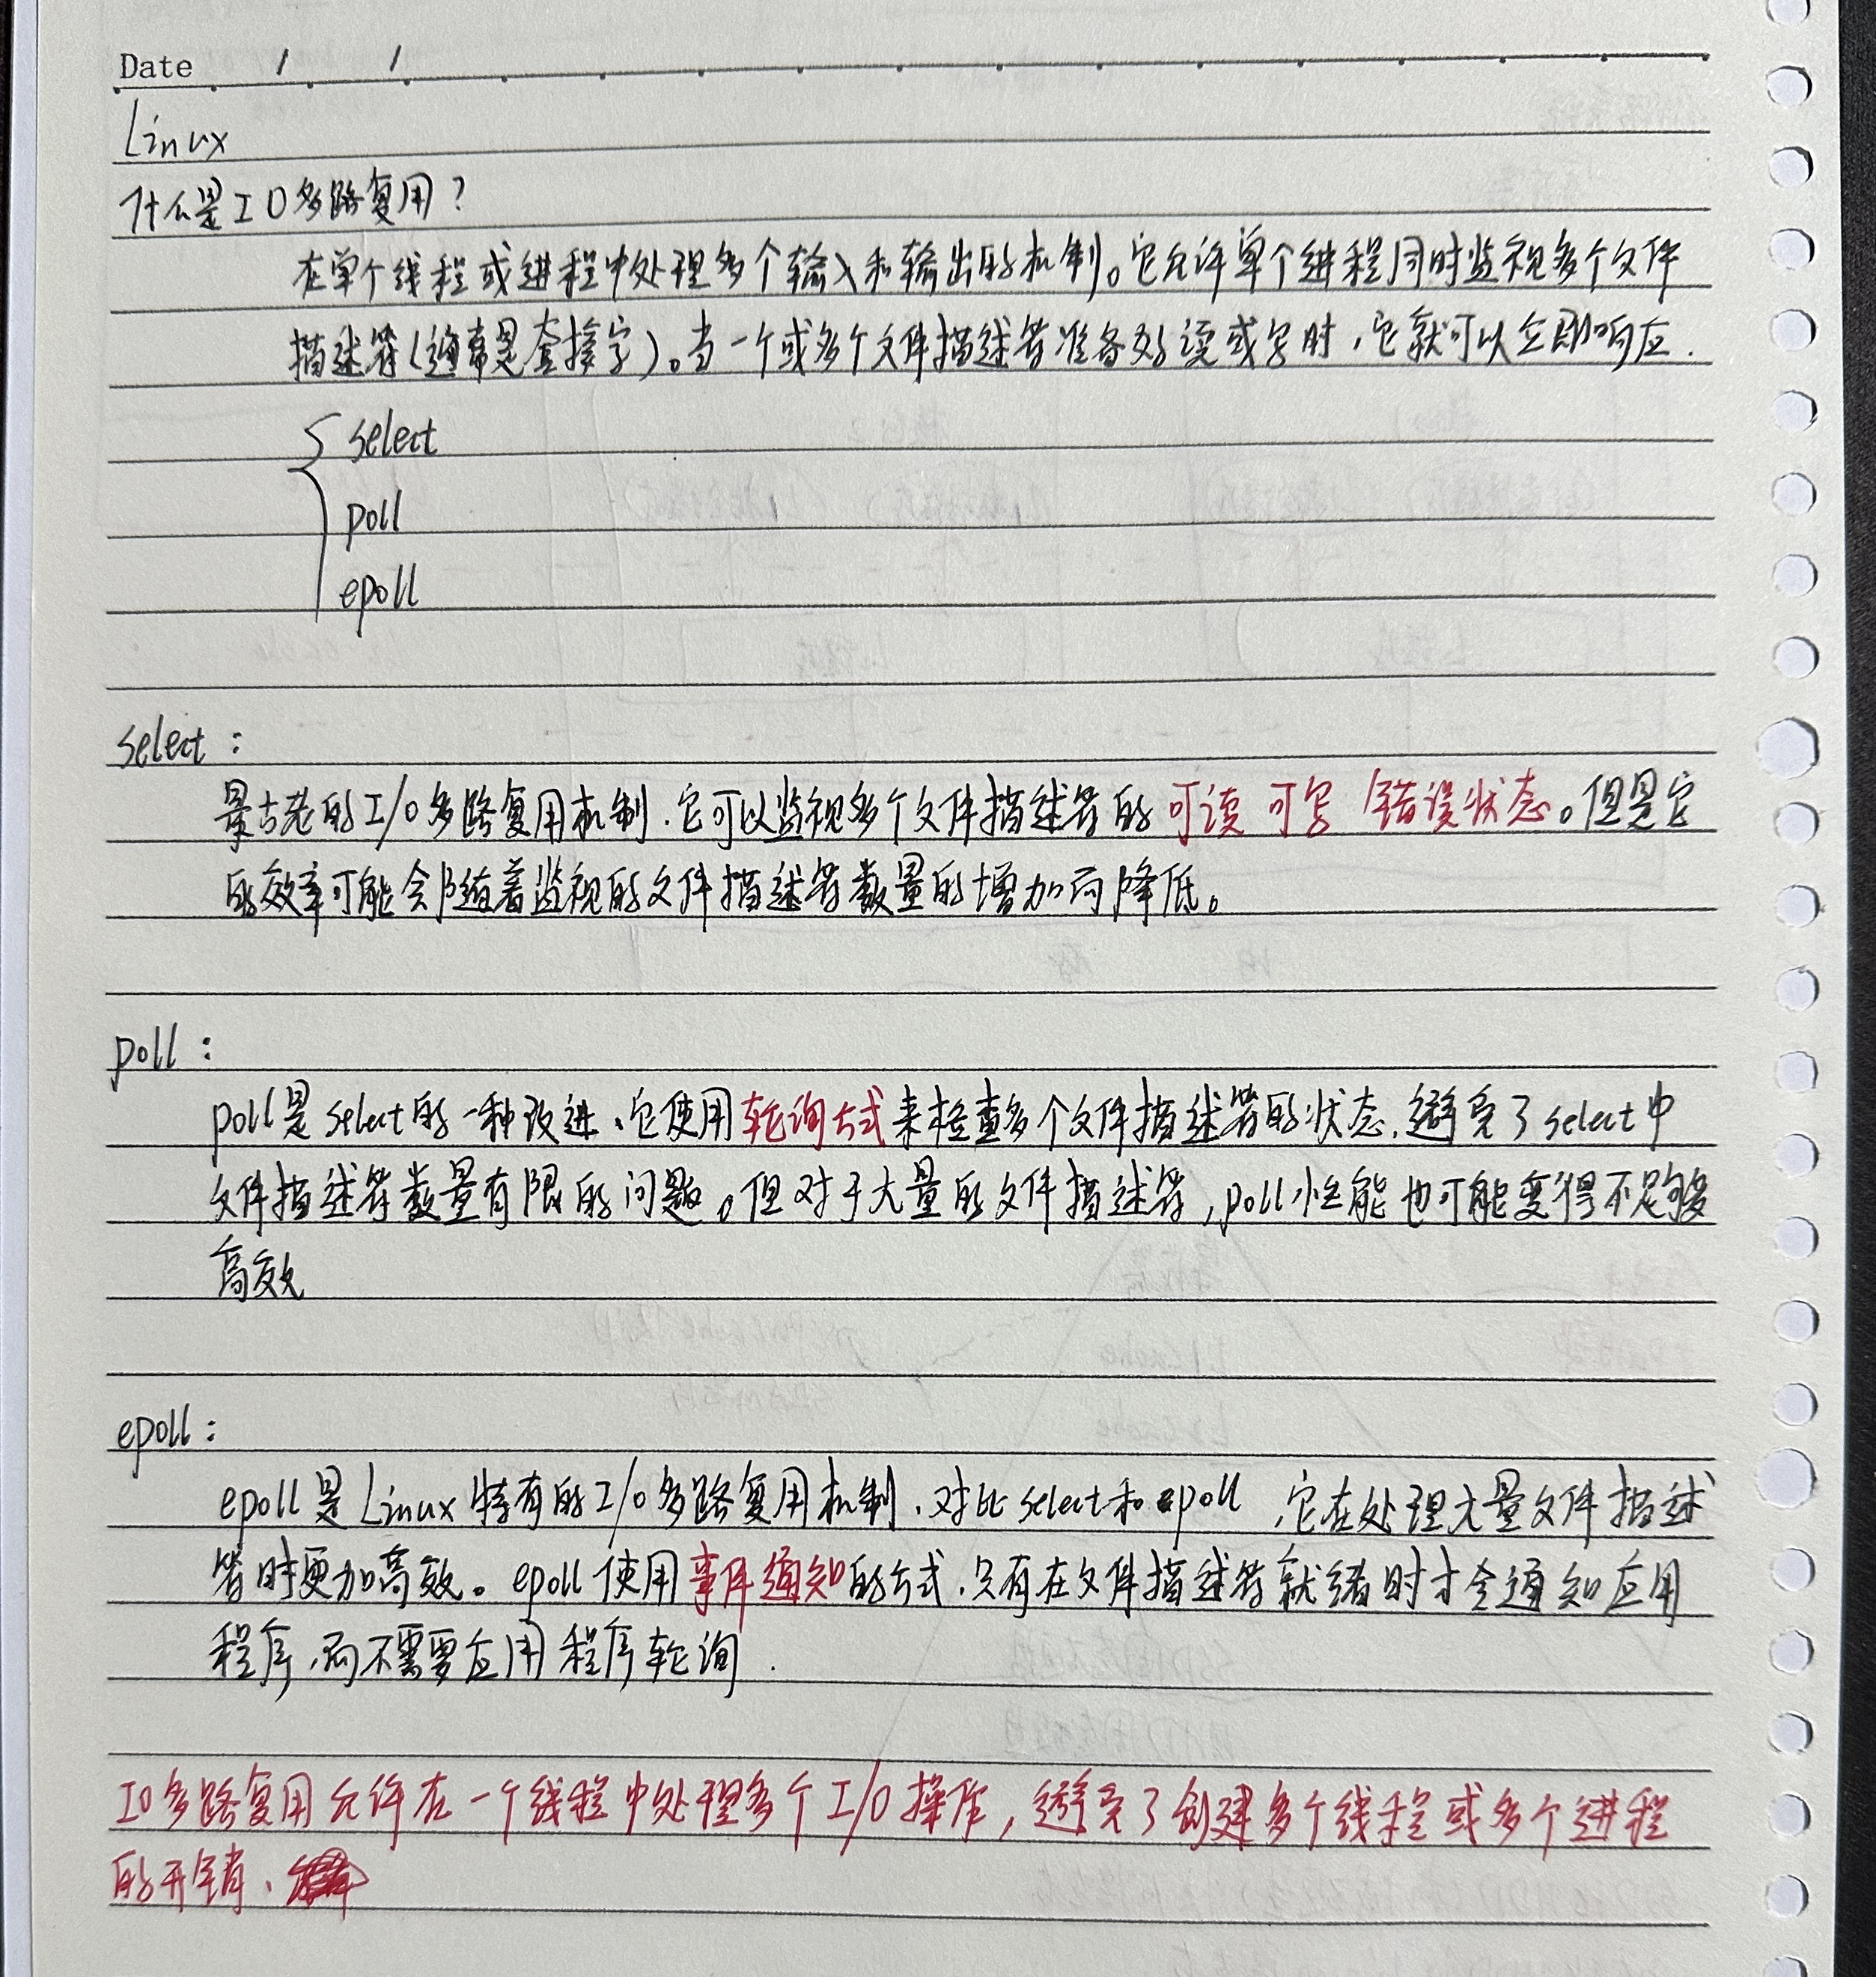 Date / /
Linux
什么是IO多路复用?
在单个线程或进程中处理多个输入和输出的机制。它允许单个进程同时监视多个文件
描述符(通常是套接字)。当一个或多个文件描述符准备好读或写时,它就可以立即响应.
select
poll
epoll
select:
最古老的I/O多路复用机制.它可以监视多个文件描述符的可读 可写 错误状态。但是它
的效率可能会随着监视的文件描述符数量的增加而降低。
poll:
poll是select的一种改进、它使用轮询方式来检查多个文件描述符的状态.避免了select中
文件描述符数量有限的问题。但对于大量的文件描述符,poll性能也可能变得不足够
高效
epoll:
epoll是Linux特有的I/O多路复用机制.对比select和epoll,它在处理大量文件描述
符时更加高效。epoll使用事件通知的方式.只有在文件描述符就绪时才会通知应用
程序,而不需要应用程序轮询.
IO多路复用允许在一个线程中处理多个I/O操作,避免了创建多个线程或多个进程
的开销.